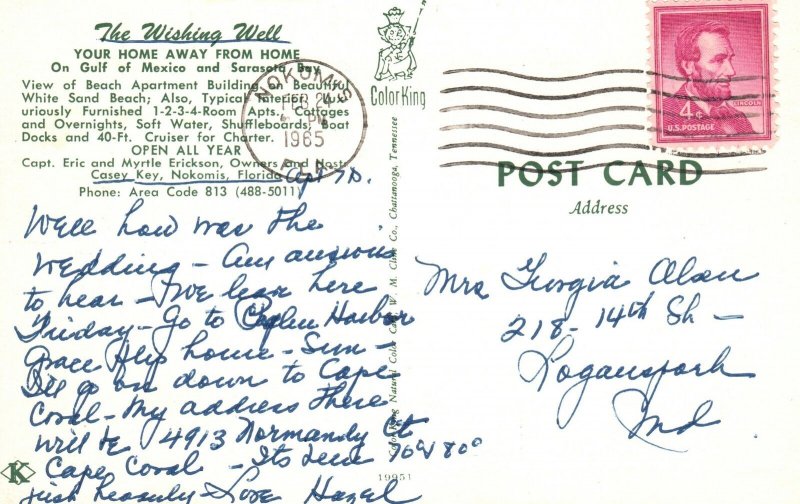 The Wishing Well
YOUR HOME AWAY FROM HOME
On Gulf of Mexico and Sarasota Bay
View of Beach Apartment Building on Beautiful
White Sand Beach; Also, Typical Interior. Lux-
uriously Furnished 1-2-3-4-Room Apts., Cottages
and Overnights, Soft Water, Shuffleboards, Boat
Docks and 40-Ft. Cruiser for Charter.
OPEN ALL YEAR
Capt. Eric and Myrtle Erickson, Owners and Hosts
Casey Key, Nokomis, Florida
Apt 7D.
Phone: Area Code 813 (488-5011)
Well how was the
Wedding - Am anxious
to hear - We leave here
Friday - Go to Harbor
Grace flys home - Sun -
I'll go on down to Cape
Coral - My address there
will be 4913 Normandy Ct
Cape Coral - Its been 70 & 80°
just heavenly - Love Hazel
K
NOKOMIS
FEB 24
PM
1965
FLA.
Color King
4¢
LINCOLN
U.S. POSTAGE
POST CARD
Address
Mrs Georgia Olsen
218 - 14th St -
Logansport
Ind
Color King Natural Color Card, W. M. Cline Co., Chattanooga, Tennessee
19951